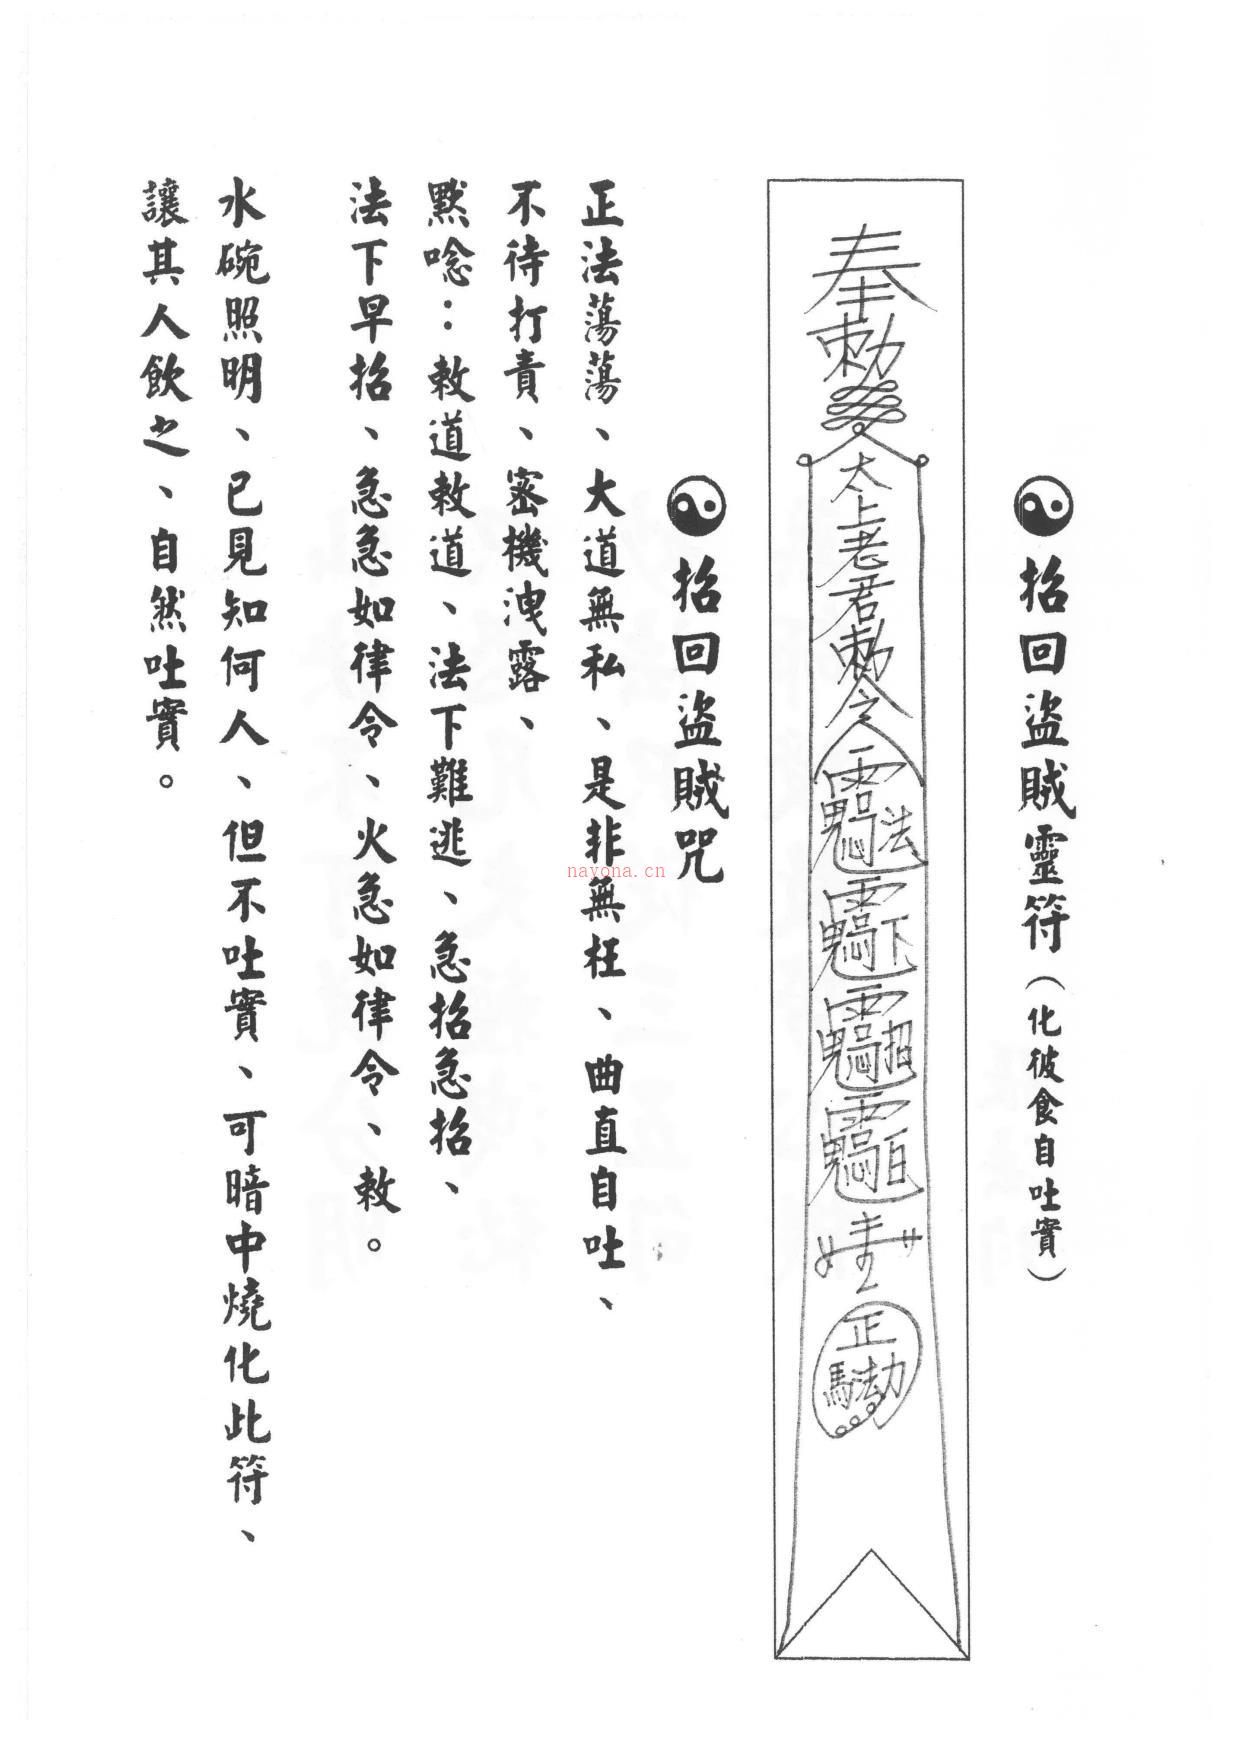 招回盜賊靈符（化彼食自吐實）
奉勅
太上老君勅令
法
下
招
自
正
馬法劫
招回盜賊咒
正法蕩蕩、大道無私、是非無枉、曲直自吐、
不待打責、密機洩露、
默唸：敕道敕道、法下難逃、急招急招、
法下早招、急急如律令、火急如律令、敕。
水碗照明、已見知何人、但不吐實、可暗中燒化此符、
讓其人飲之、自然吐實。
nayona.cn